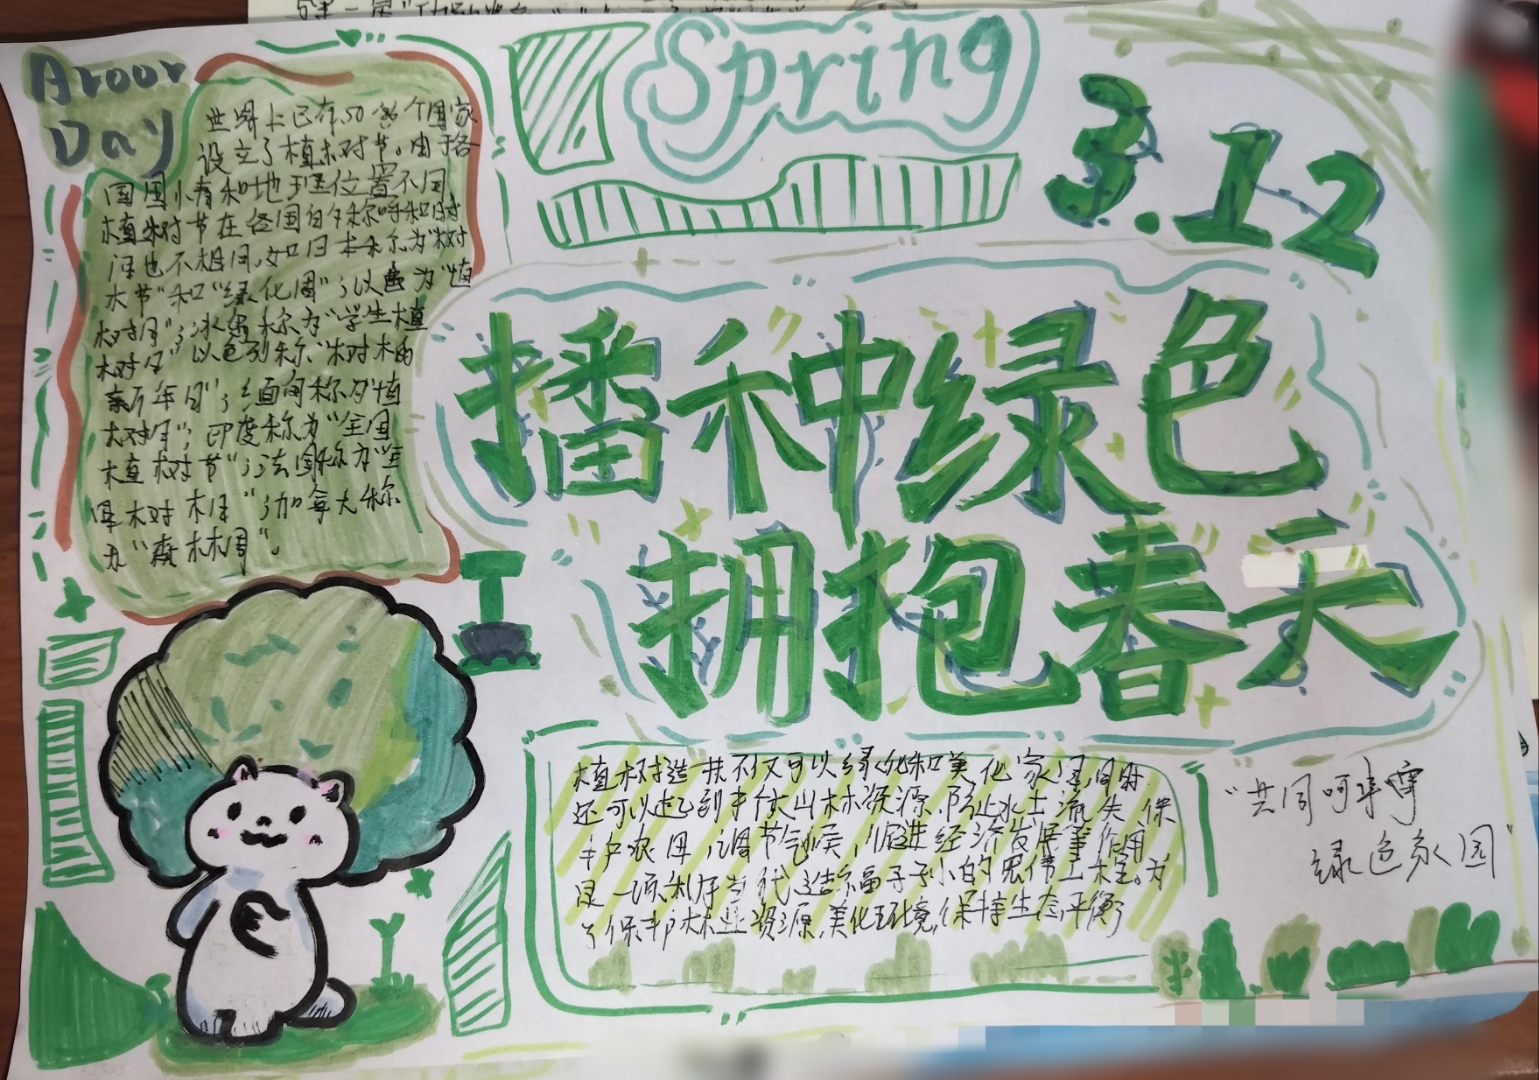 Arbor
Day
世界上已有50多个国家
设立了植树节。由于各
国国情和地理位置不同,
植树节在各国的称呼和时
间也不相同,如日本称为"树
木节"和"绿化周";以色列为"植
树月";冰岛称为"学生植
树日"以色列称"树木的
新年日";缅甸称为"植
树月";印度称为"全国
植树节";法国称为"全
国树木日";加拿大称
为"森林周"。
Spring
3.12
播种绿色
拥抱春天
植树造林不仅可以绿化和美化家园,同时
还可以起到扩大山林资源、防止水土流失、保
护农田、调节气候、促进经济发展等作用
是一项利于当代、造福子孙的宏伟工程。为
了保护林业资源,美化环境,保持生态平衡
"共同呵护
绿色家园"